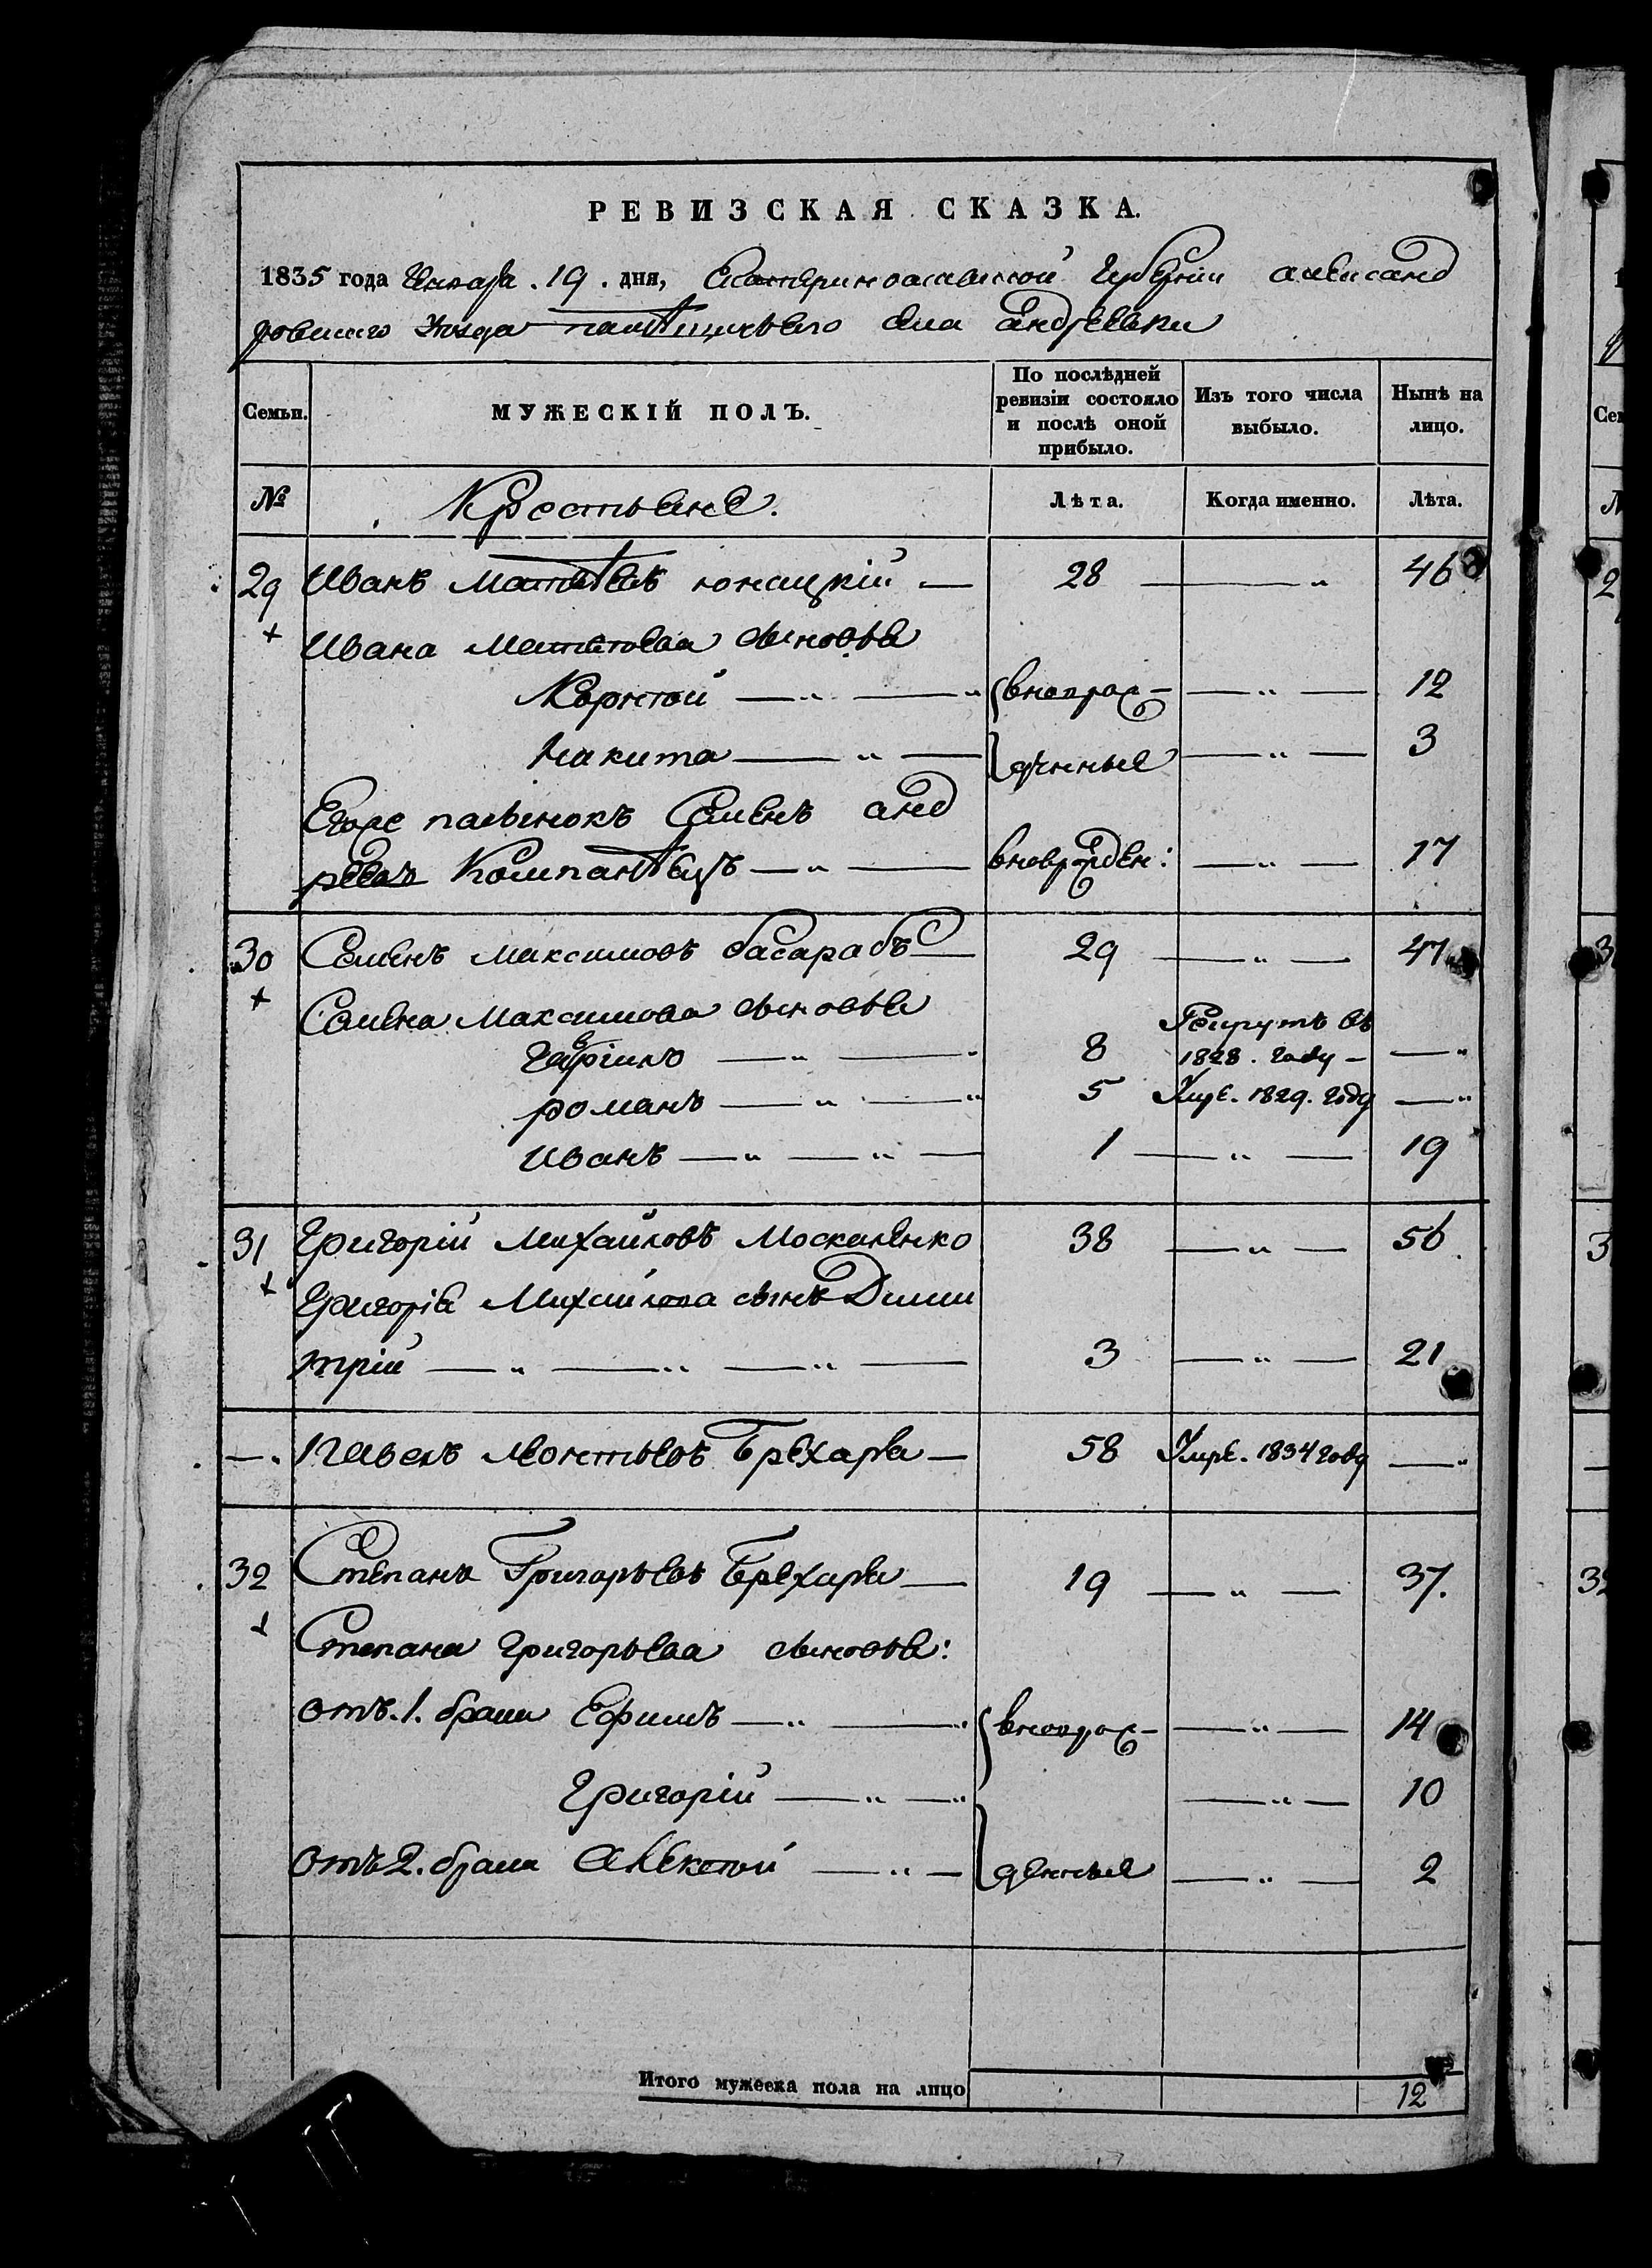 РЕВИЗСКАЯ СКАЗКА.
1835 года Генваря . 19 . дня, Екатеринославской Губерніи александ
ровскаго Уѣзда села андреевки
Семьи.
МУЖЕСКІЙ ПОЛЪ.
По послѣдней ревизіи состояло и послѣ оной прибыло.
Изъ того числа выбыло.
Нынѣ на лицо.
№ Крестьяне. Лѣта. Когда именно. Лѣта.
29 Иванъ Матвѣевъ юнацкій — 28 — " 46
+ Ивана Матвѣева сыновья
Корнѣй — " — " { вновурож — — " — 12
Никита — " — денные — " — 3
Егоре Семенъ анд
реевъ — " — вноврожден: — " — 17
30 Семенъ Максимовъ басарабъ — 29 — " — 47
+ Семена Максимова сыновья
Гаврило — " — " 8 Рекрутъ въ 1828. году — — "
романъ — " — " 5 Умре. 1829. году — "
Иванъ — " — " — 1 — " — 19
31 Григорій Михайловъ Москаленко 38 — " — 56
+ Григорія Михайлова сынъ Дими
трій — " — " — " — 3 — " — 21
— . Павелъ Леонтьевъ Брехаря — 58 Умре. 1834 году — "
32 Степанъ Григорьевъ Брехаря — 19 — " — 37.
+ Степана Григорьева сыновья:
отъ. 1. брака Ефимъ — " — " { вновурож — — " — 14
Григорій — " — " — " — 10
отъ 2. брака Алексѣй — " — денные — " — 2
Итого мужеска пола на лицо 12